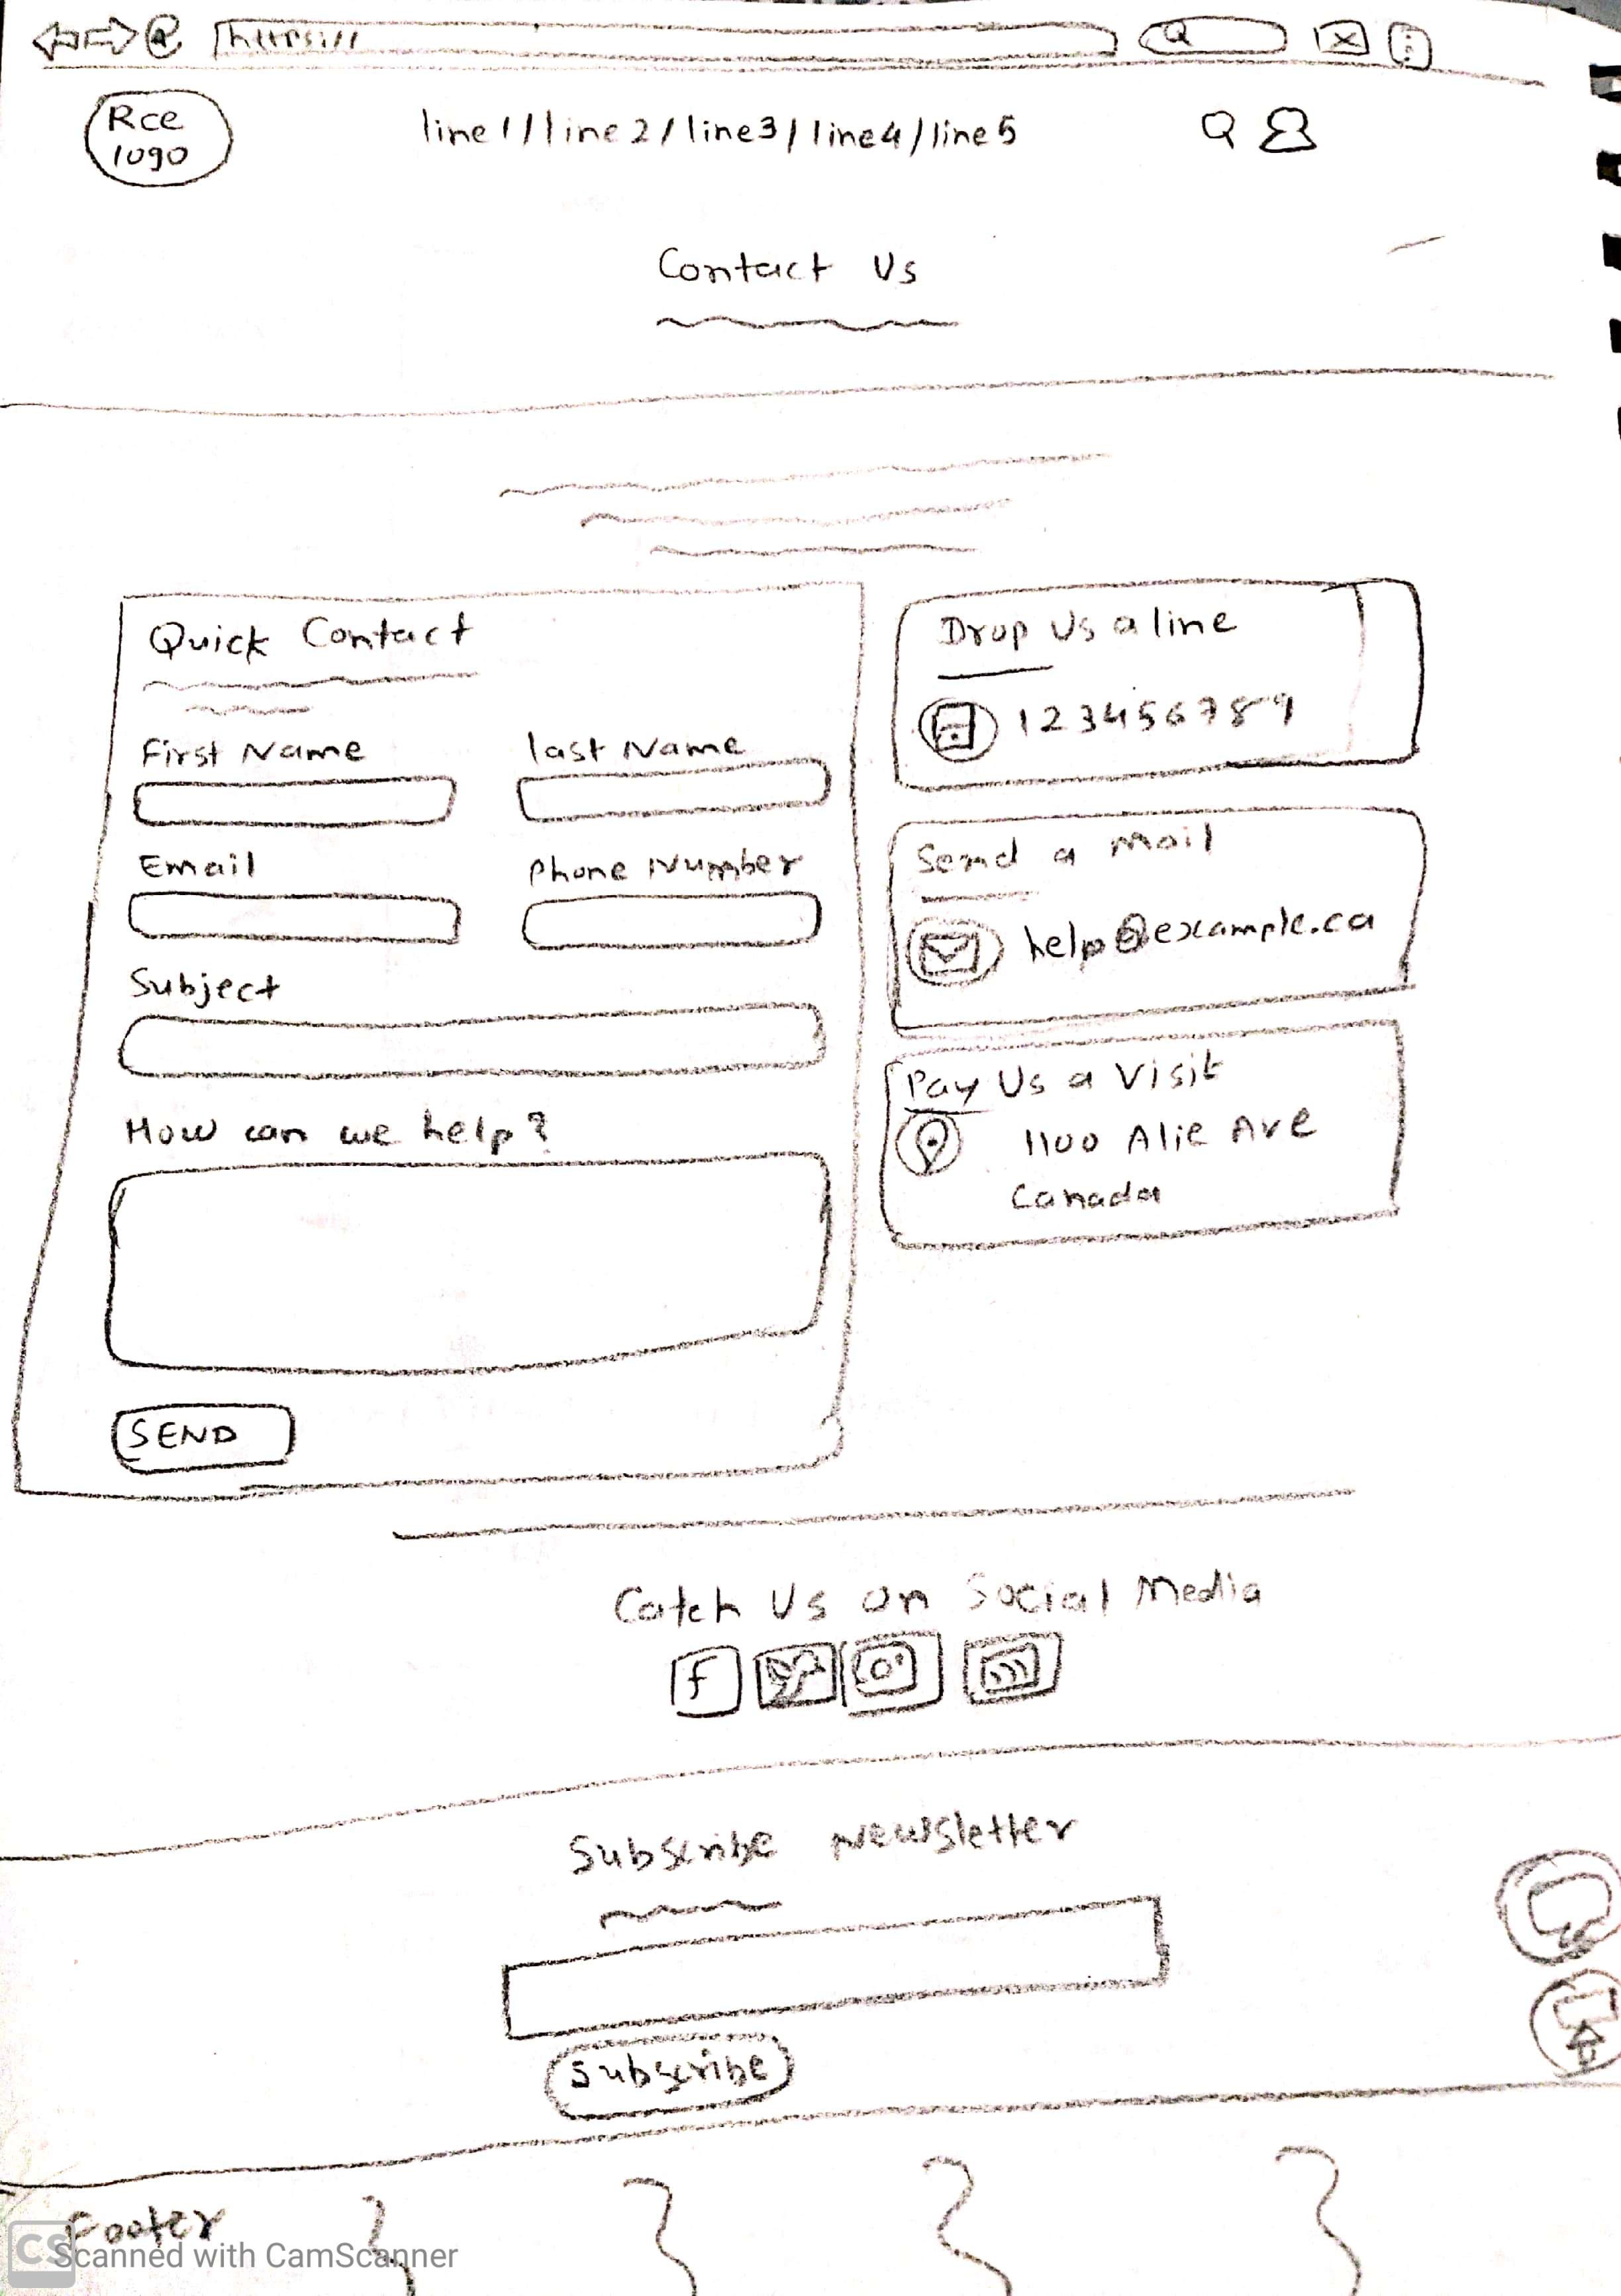 https://
Rce
logo
line1/line2/line3/line4/line5
Contact Us
Quick Contact
First Name
last Name
Email
Phone Number
Subject
How can we help?
SEND
Drop Us a line
123456789
Send a Mail
help@example.ca
Pay Us a Visit
1100 Alie Ave
Canada
Catch Us on Social Media
f
Subscribe Newsletter
Subscribe
Footer
CS Scanned with CamScanner